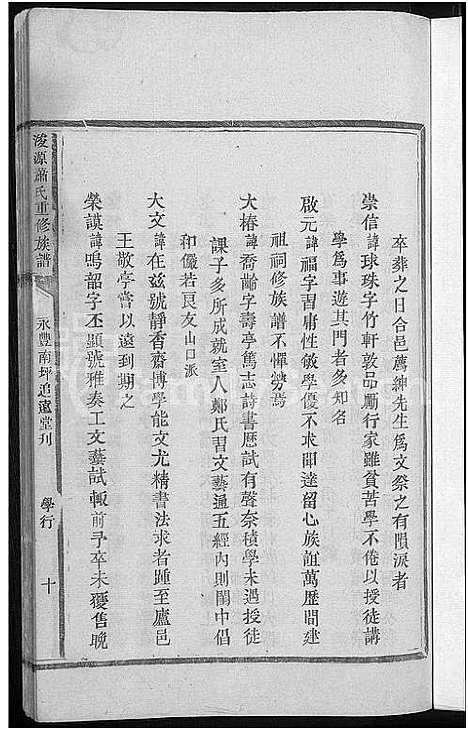 卒葬之日合邑薦紳先生爲文祭之有隕淚者
崇信諱球珠字竹軒敦品勵行家雖貧苦學不倦以授徒講
學爲事遊其門者多知名
啟元諱福字習庸性敏學優不求聞達留心族誼萬歷間建
祖祠修族譜不憚勞焉
大椿諱喬齡字壽亭篤志詩書歷試有聲奈積學未遇授徒
課子多所成就室人鄭氏習文藝通五經內則閨中倡
和儼若良友山口派
大文諱在兹號靜香齋博學能文尤精書法求者踵至廬邑
王敬亭嘗以遠到期之
榮謨諱鳴韶字丕顯號雅奏工文藝試輒前矛卒未獲售晚
浚源蕭氏重修族譜
永豐南坪追遠堂刊
學行
十